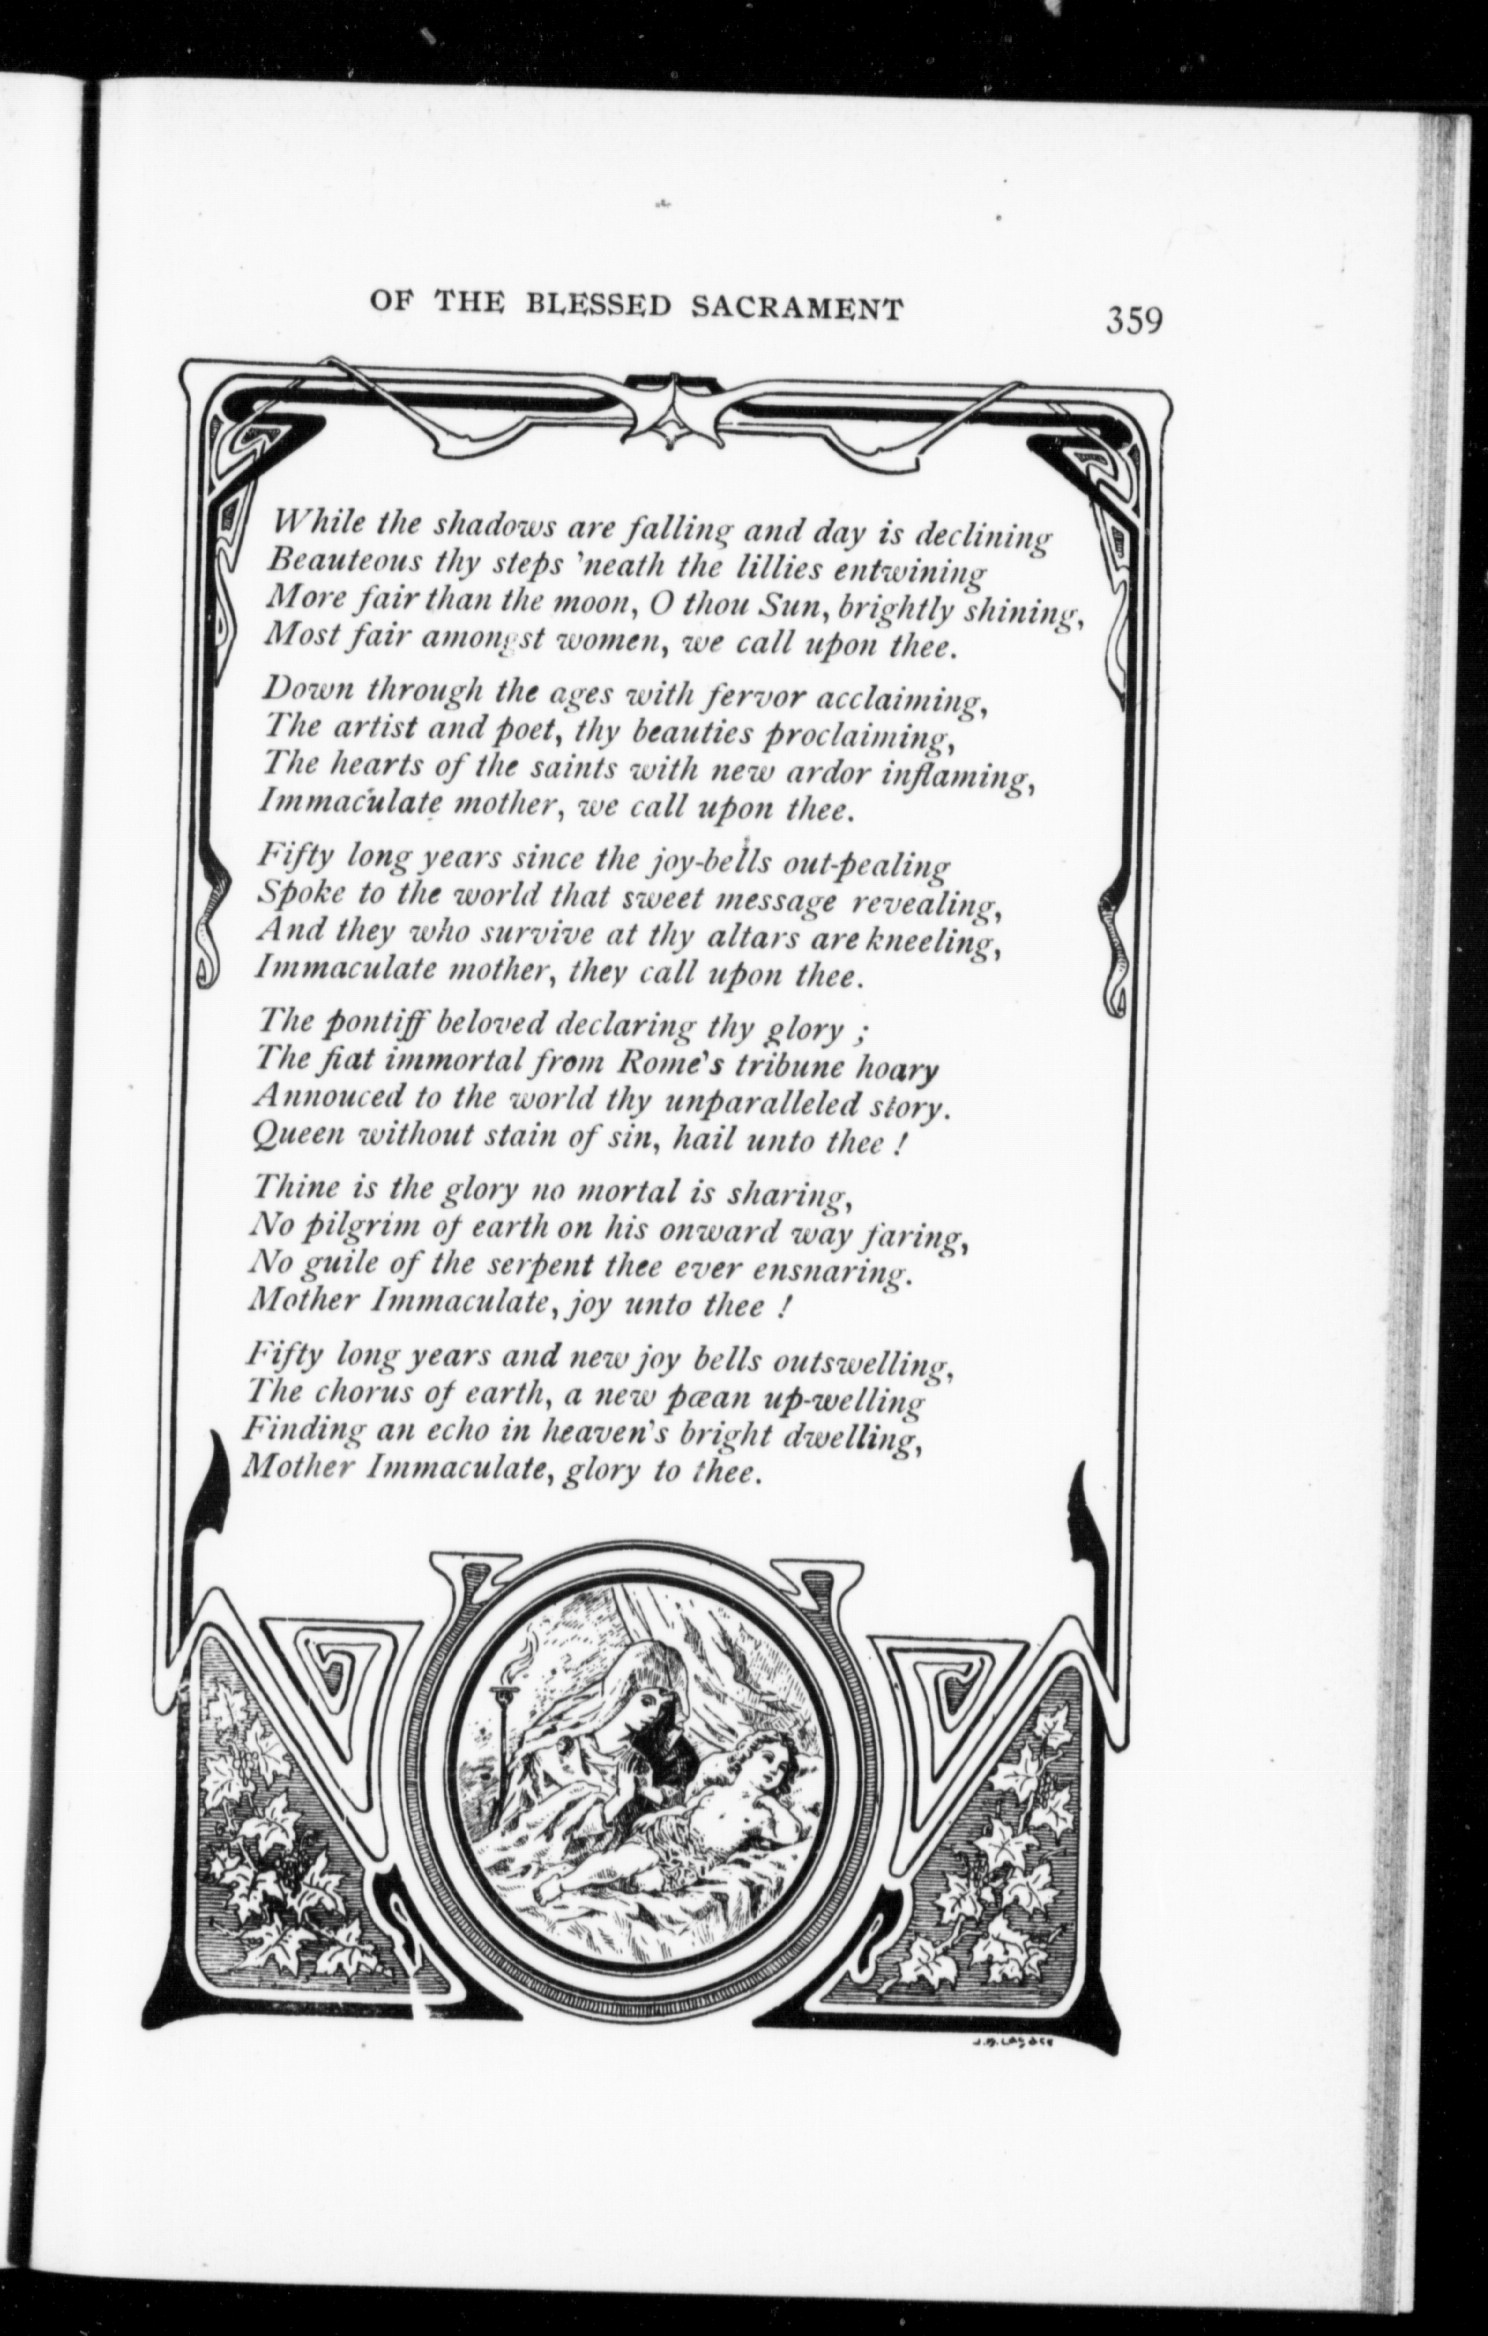 OF THE BLESSED SACRAMENT 359
While the shadows are falling and day is declining
Beauteous thy steps 'neath the lillies entwining
More fair than the moon, O thou Sun, brightly shining,
Most fair amongst women, we call upon thee.
Down through the ages with fervor acclaiming,
The artist and poet, thy beauties proclaiming,
The hearts of the saints with new ardor inflaming,
Immaculate mother, we call upon thee.
Fifty long years since the joy-bells out-pealing
Spoke to the world that sweet message revealing,
And they who survive at thy altars are kneeling,
Immaculate mother, they call upon thee.
The pontiff beloved declaring thy glory ;
The fiat immortal from Rome's tribune hoary
Annouced to the world thy unparalleled story.
Queen without stain of sin, hail unto thee !
Thine is the glory no mortal is sharing,
No pilgrim of earth on his onward way faring,
No guile of the serpent thee ever ensnaring.
Mother Immaculate, joy unto thee !
Fifty long years and new joy bells outswelling,
The chorus of earth, a new pœan up-welling
Finding an echo in heaven's bright dwelling,
Mother Immaculate, glory to thee.